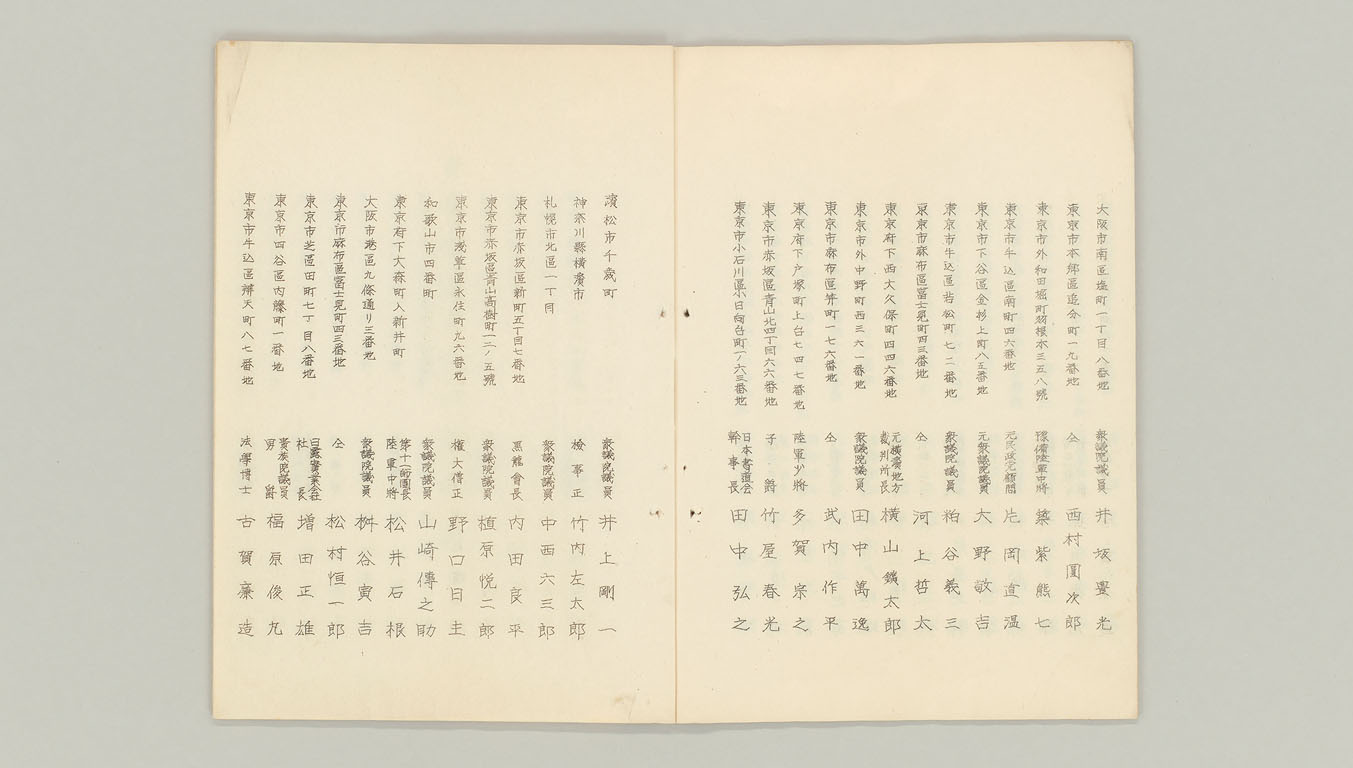 大阪市南區塩町一丁目八番地 衆議院議員 井坂豊光
東京市本郷區追分町一九番地 仝 西村圓次郎
東京市外和田堀町羽根木三五八號 豫備陸軍中將 築紫熊七
東京市牛込區南町四六番地 元民政党顧問 片岡直温
東京市下谷區金杉上町八五番地 元衆議院議員 大野敬吉
東京市牛込區若松町七二番地 衆議院議員 粕谷義三
東京市麻布區富士見町四三番地 仝 河上哲太
東京府下西大久保町四四六番地 元横濱地方裁判所長 横山鑛太郎
東京市外中野町西三六一番地 衆議院議員 田中萬逸
東京市麻布區笄町一七六番地 仝 武内作平
東京府下戸塚町上台七四七番地 陸軍少將 多賀宗之
東京市赤坂區青山北四丁目六六番地 子爵 竹屋春光
東京市小石川區小日向台町一ノ六三番地 日本書道会幹事長 田中弘之
濱松市千歳町 衆議院議員 井上剛一
神奈川縣横濱市 検事正 竹内左太郎
札幌市北區一丁目 衆議院議員 中西六三郎
東京市赤坂區新町五丁目七番地 黒龍會長 内田良平
東京市赤坂區青山高樹町一二ノ五號 衆議院議員 植原悦二郎
東京市浅草區永住町九六番地 権大僧正 野口日主
和歌山市四番町 衆議院議員 山崎傳之助
東京府下大森町入新井町 第十一師團長陸軍中將 松井石根
大阪市港區九條通リ三番地 衆議院議員 桝谷寅吉
東京市麻布區富士見町四三番地 仝 松村恒一郎
東京市芝區田町七丁目八番地 日露實業会社社長 増田正雄
東京市四谷區内藤町一番地 貴族院議員男爵 福原俊丸
東京市牛込區辨天町八七番地 法學博士 古賀廉造